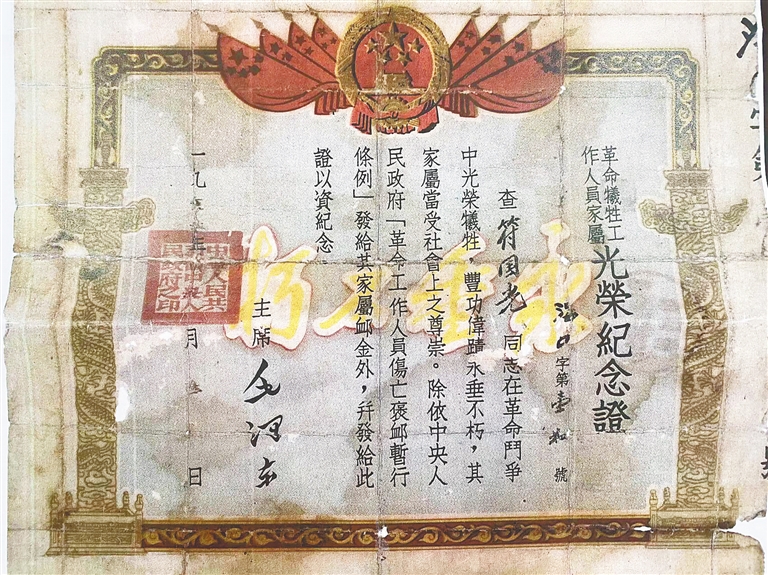 革命犧牲工
作人員家屬
光榮紀念證
海口字第壹 號
查符國光同志在革命鬥爭
中光榮犧牲,豐功偉蹟永垂不朽,其
家屬當受社會上之尊崇。除依中央人
民政府「革命工作人員傷亡褒卹暫行
條例」發給其家屬卹金外,并發給此
證以資紀念。
主席 毛澤東
一九 年 月 日
中華人民共
和國中央人
民政府之印
永垂不朽